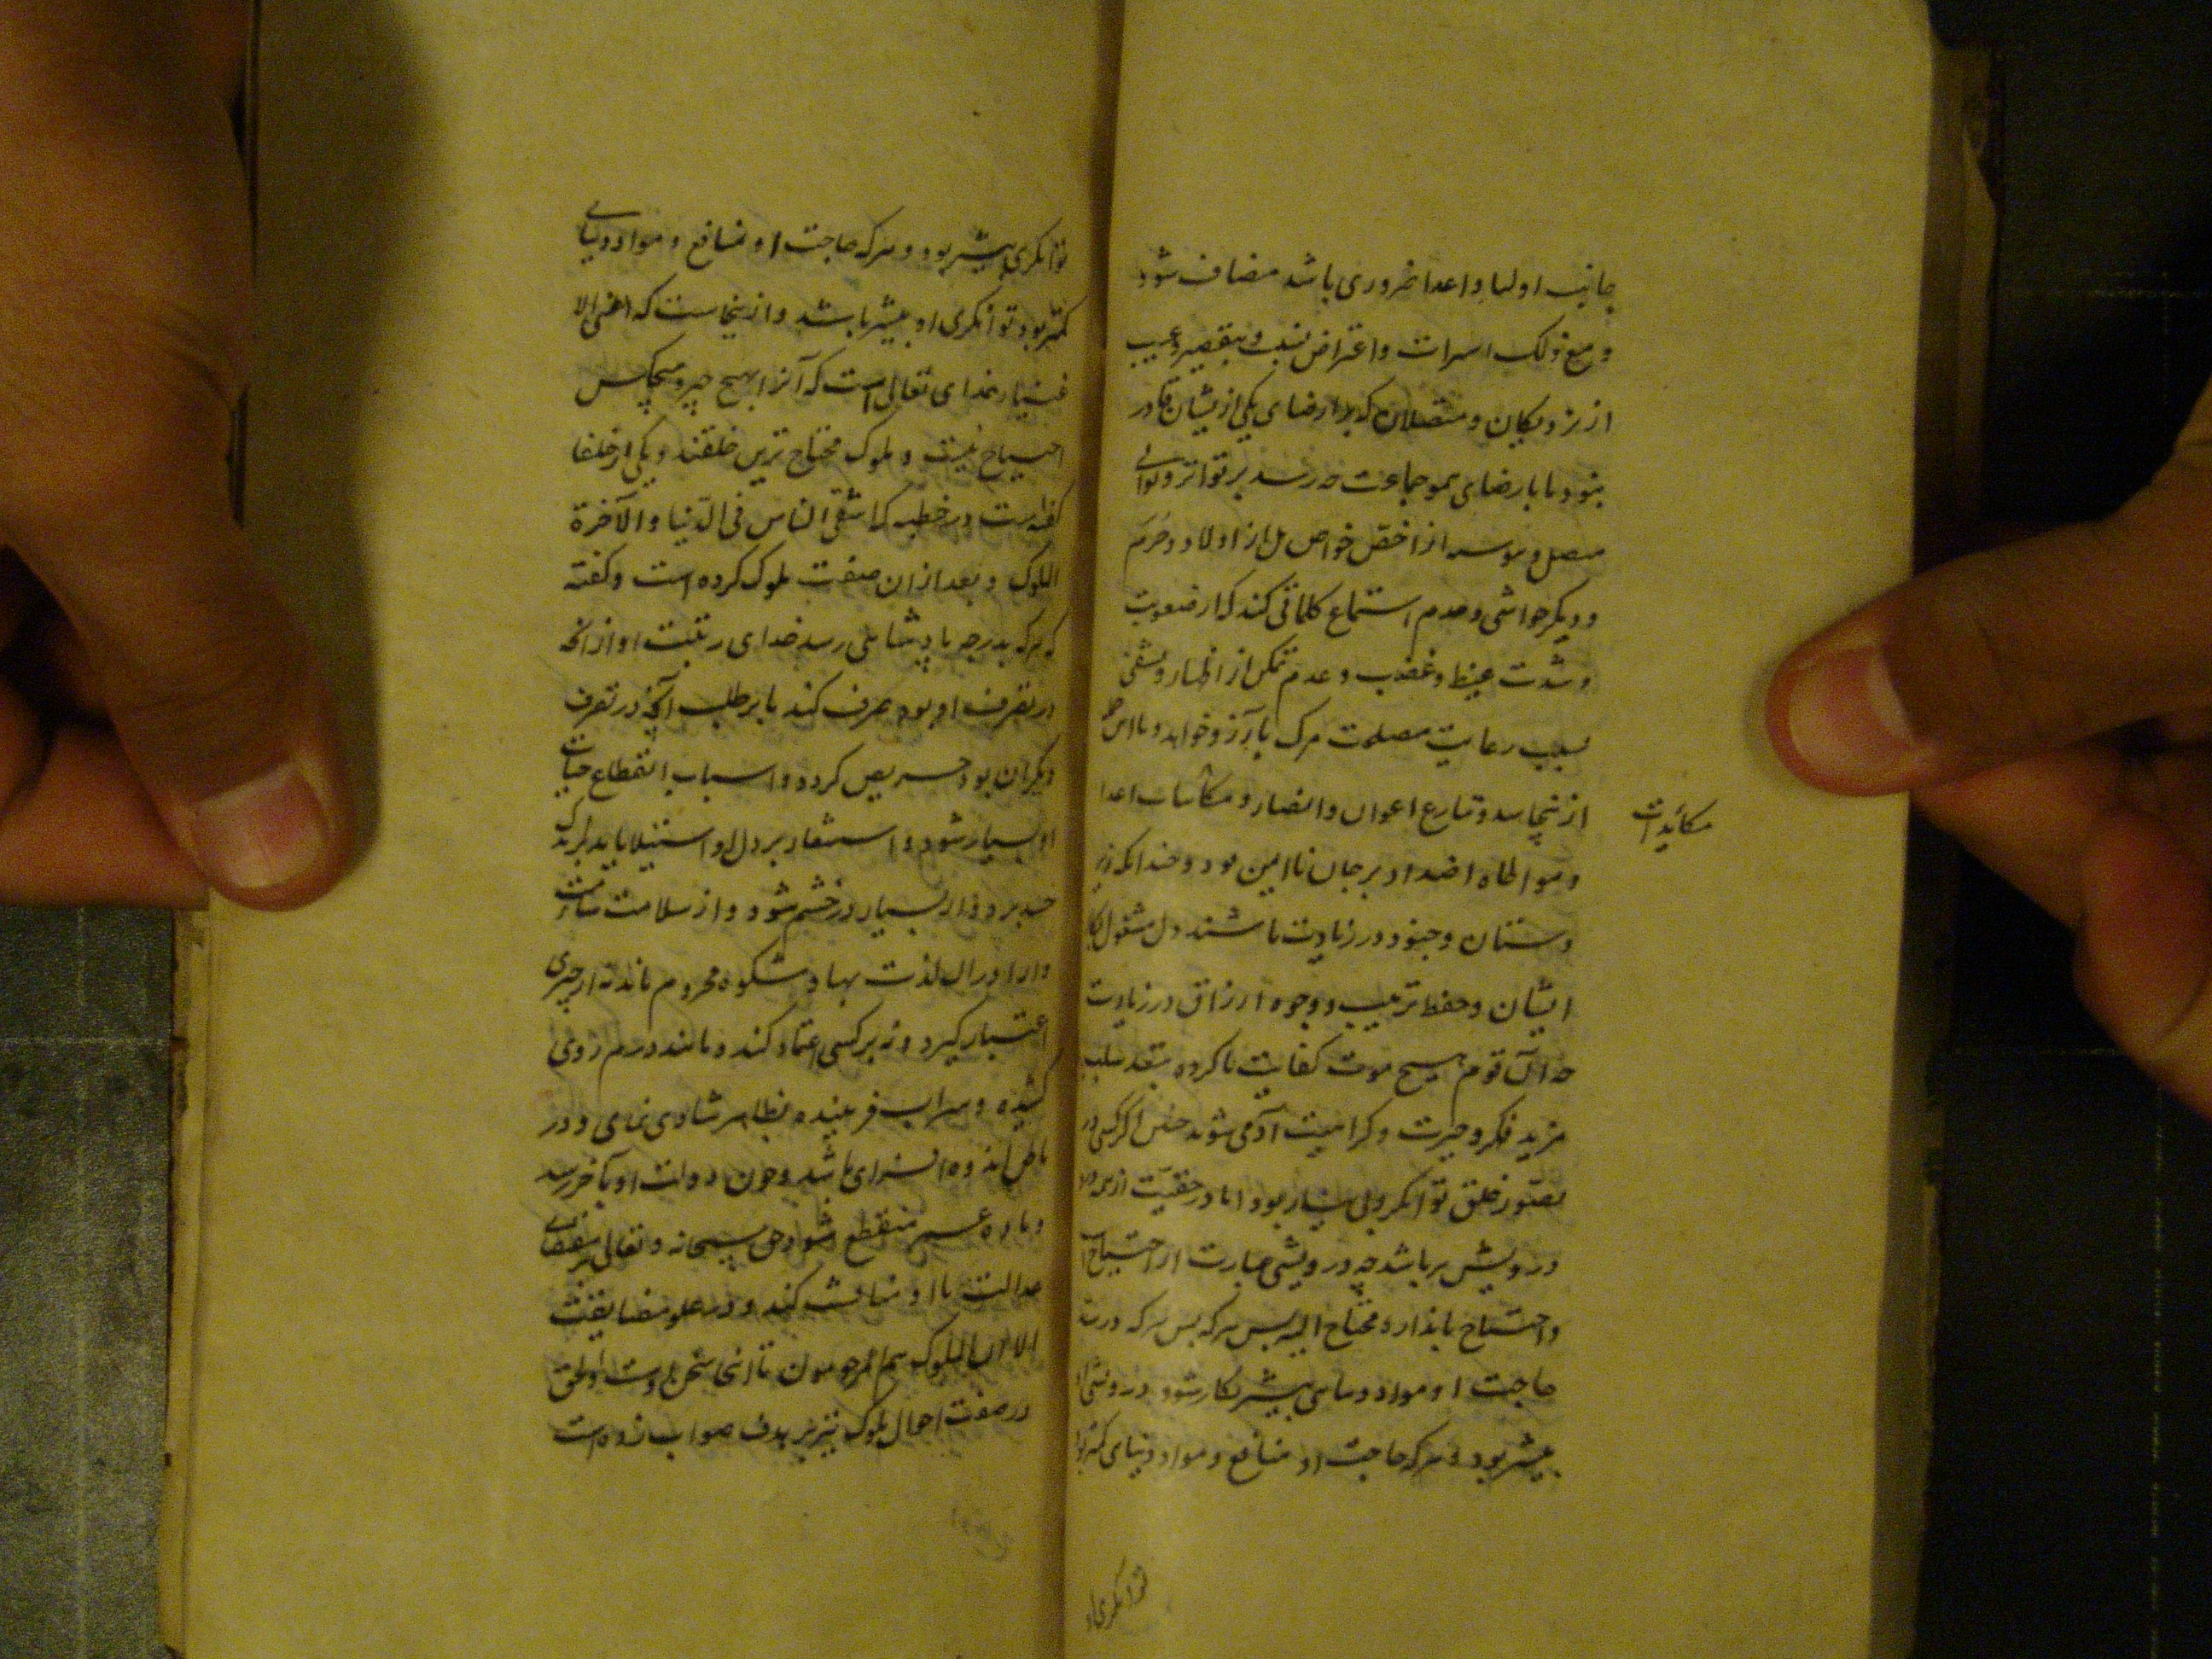 جانب اولیا و اعدا ضروری باشد مضاف شود
و مع ذلک اسراف و اعتراض نسبت بتقصیر و عیب
از نزدیکان و متصلان که بر ارضای یکی ازیشان قادر
نبود تا بارضای همو جماعت چه رسد بر تواتر و توالی
متصل و پیوسته از اخص خواص مثل از اولاد و حرم
و دیگر حواشی و خدم استماع کلماتی کند که از صعوبت
و شدت غیظ و غضب و عدم تمکن از اظهار و تشفی
بسبب رعایت مصلحت مرگ بآرزو خواهد و با این همه
از تحاسد و تنازع اعوان و انصار و مکائدات اعدا
مکائدات
و مواطاه اضداد بر جان ناایمن بود و چندانکه زیر
دستان و جنود در زیادت باشند دل مشغول بکار
ایشان و حفظ ترتیب و وجوه ارزاق در زیادت
چه آن قوم هیچ موت کفایت ناکرده بنقد سبب
مزید فکر و حیرت و کراهیت آدمی شوند جنس اگر کسی در
تصور خلق توانگر و بی نیاز بود اما در حقیقت از همه
درویش تر باشد چه درویشی عبارت از احتیاج است
و احتیاج باندازه محتاج الیه پس هر که پس هر که در
حاجت او مواد دنیاوی بیشتر بکار شود درویشی او
بیشتر بود و هر که حاجت او منافع و مواد دنیای کمتر بود
توانگری او
توانگری بیشتر بود و هر که حاجت او منافع و مواد دنیای
کمتر بود توانگری او بیشتر باشد و ازینجاست که اغنی الا
غنیا خدای تعالی است که آنرا بهیچ چیز و هیچکس
احتیاج نیست و ملوک محتاج ترین خلقند و یکی از خلفا
گفته است در خطبه که اشقی الناس فی الدنیا و الآخرة
الملوک و بعد از ان صفت ملوک کرده است و گفته
که هر که بدرجه پادشاهی رسد خدای رغبت او از انچه
در تصرف او بود صرف کند تا بر طلب آنچه در تصرف
دیگران بود حریص کرده و اسباب انقطاع حیات
او بسیار شود و استشعار بر دل او استیلا یابد بر اندک
حسد برد و از بسیار در خشم شود و از سلامت سآمت
دارد و از ادراک لذت بها و شکوه محروم ماند نه از چیزی
اعتبار گیرد و نه بر کسی اعتماد کند و مانند درم زوی
کشیده و سراب فریبنده بظاهر شادی نمای و در
باطن اندوه افزای باشد و چون دولت او بآخر رسد
و ماده عمر منقطع شود حق سبحانه و تعالی بر مقتضای
عدالت با او مناقشت کند و در عفو مضایقت
الا ان الملوک هم المرحومون تا انجا سخن اوست و الحق
در صفت احوال ملوک تیر بر هدف صواب زده است